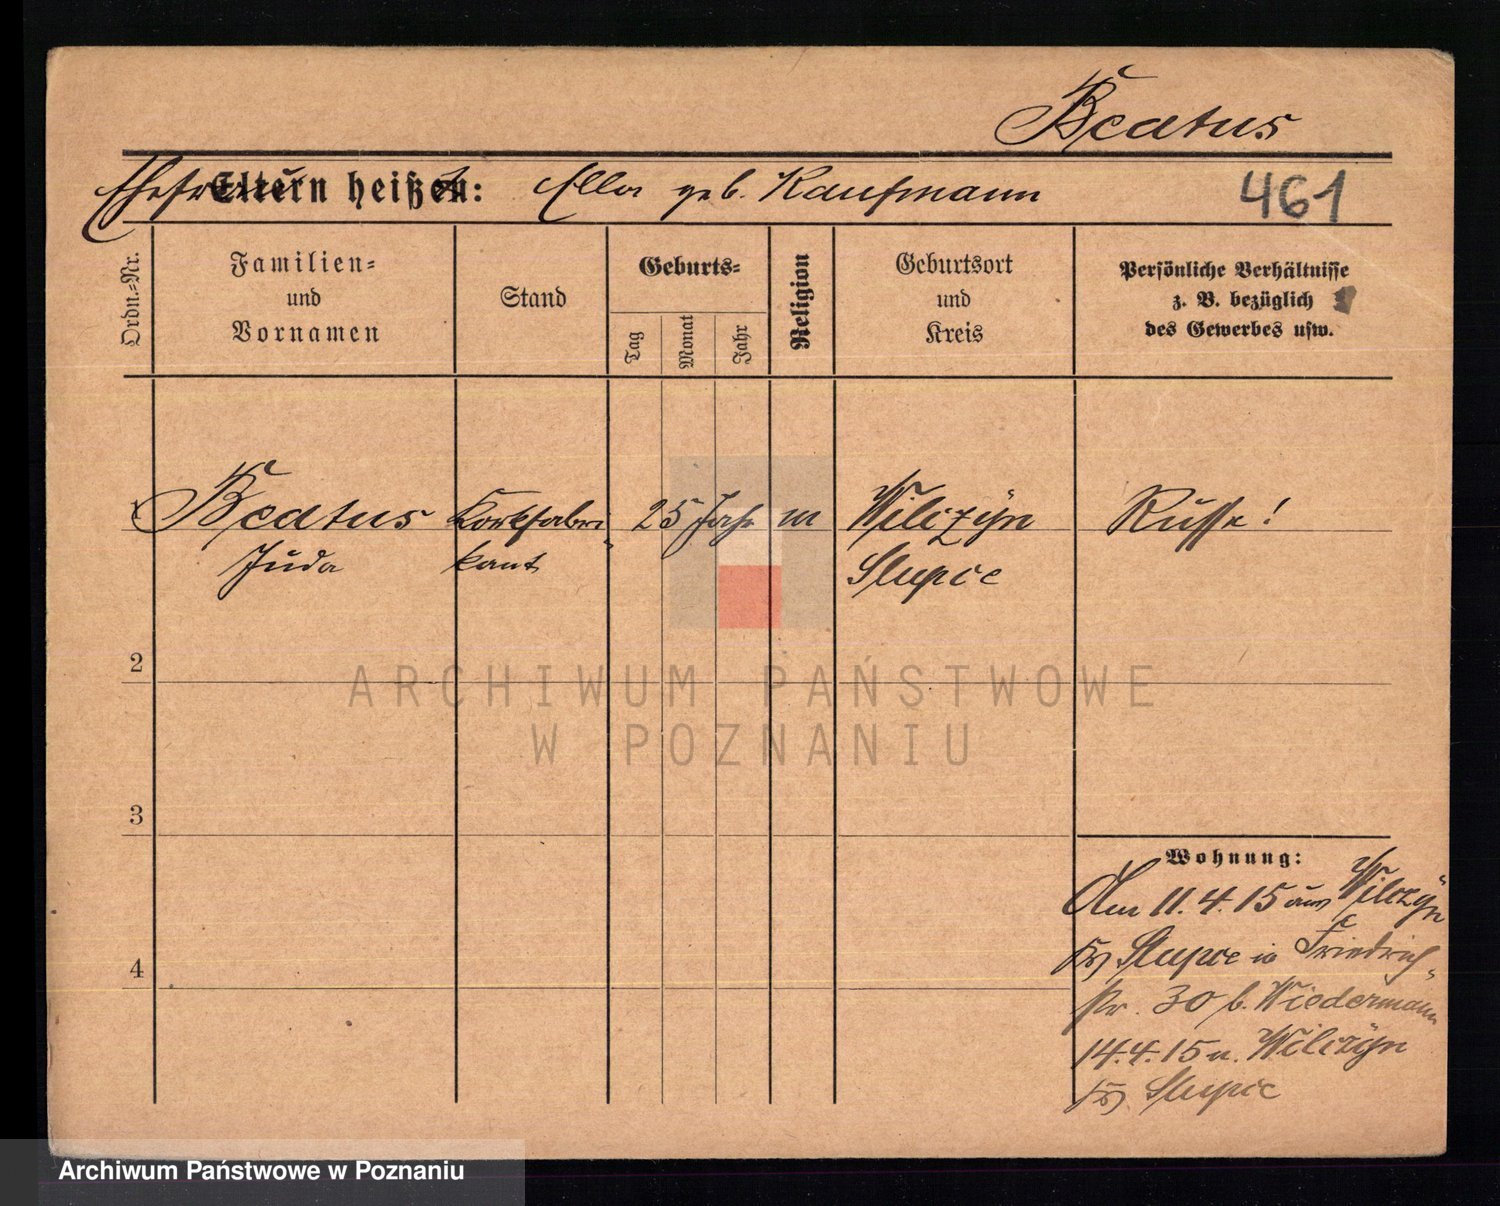 Beatus
Eltern heißen: Ella geb. Kaufmann
461
Ordn.-Nr.
Familien-
und
Vornamen
Stand
Geburts-
Tag
Monat
Jahr
Religion
Geburtsort
und
Kreis
Persönliche Verhältnisse
z. B. bezüglich
des Gewerbes usw.
1 Beatus Korkfabri- 25 Jahr m Wilczyn Russe!
Juda kant Slupce
2
3
4
Wohnung:
Am 11.4.15 aus Wilczyn
Slupce in Friedrich-
str. 30 b. Wiedermann
14.4.15 n. Wilczyn
Slupce
ARCHIWUM PAŃSTWOWE
W POZNANIU
Archiwum Państwowe w Poznaniu